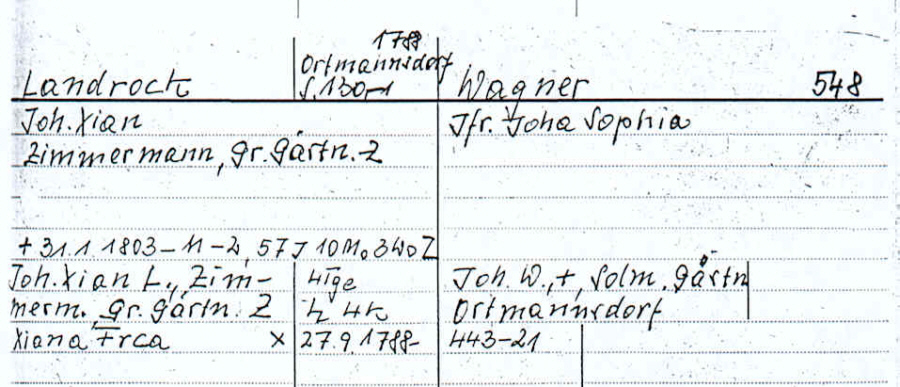 1788
Ortmannsdorf
Landrock S.130-1 Wagner 548
Joh. Xian Jfr. Joha Sophia
Zimmermann, gr. Gärtn. Z
+ 31.1.1803 57 J 10 Mo 3 Wo Z
Joh. Xian L., Zim- Joh. W., +, Solm. Gärtn
merm. Gr. Gärtn. Z Ortmannsdorf
Xiana Frca X 27.9.1788- 443-21